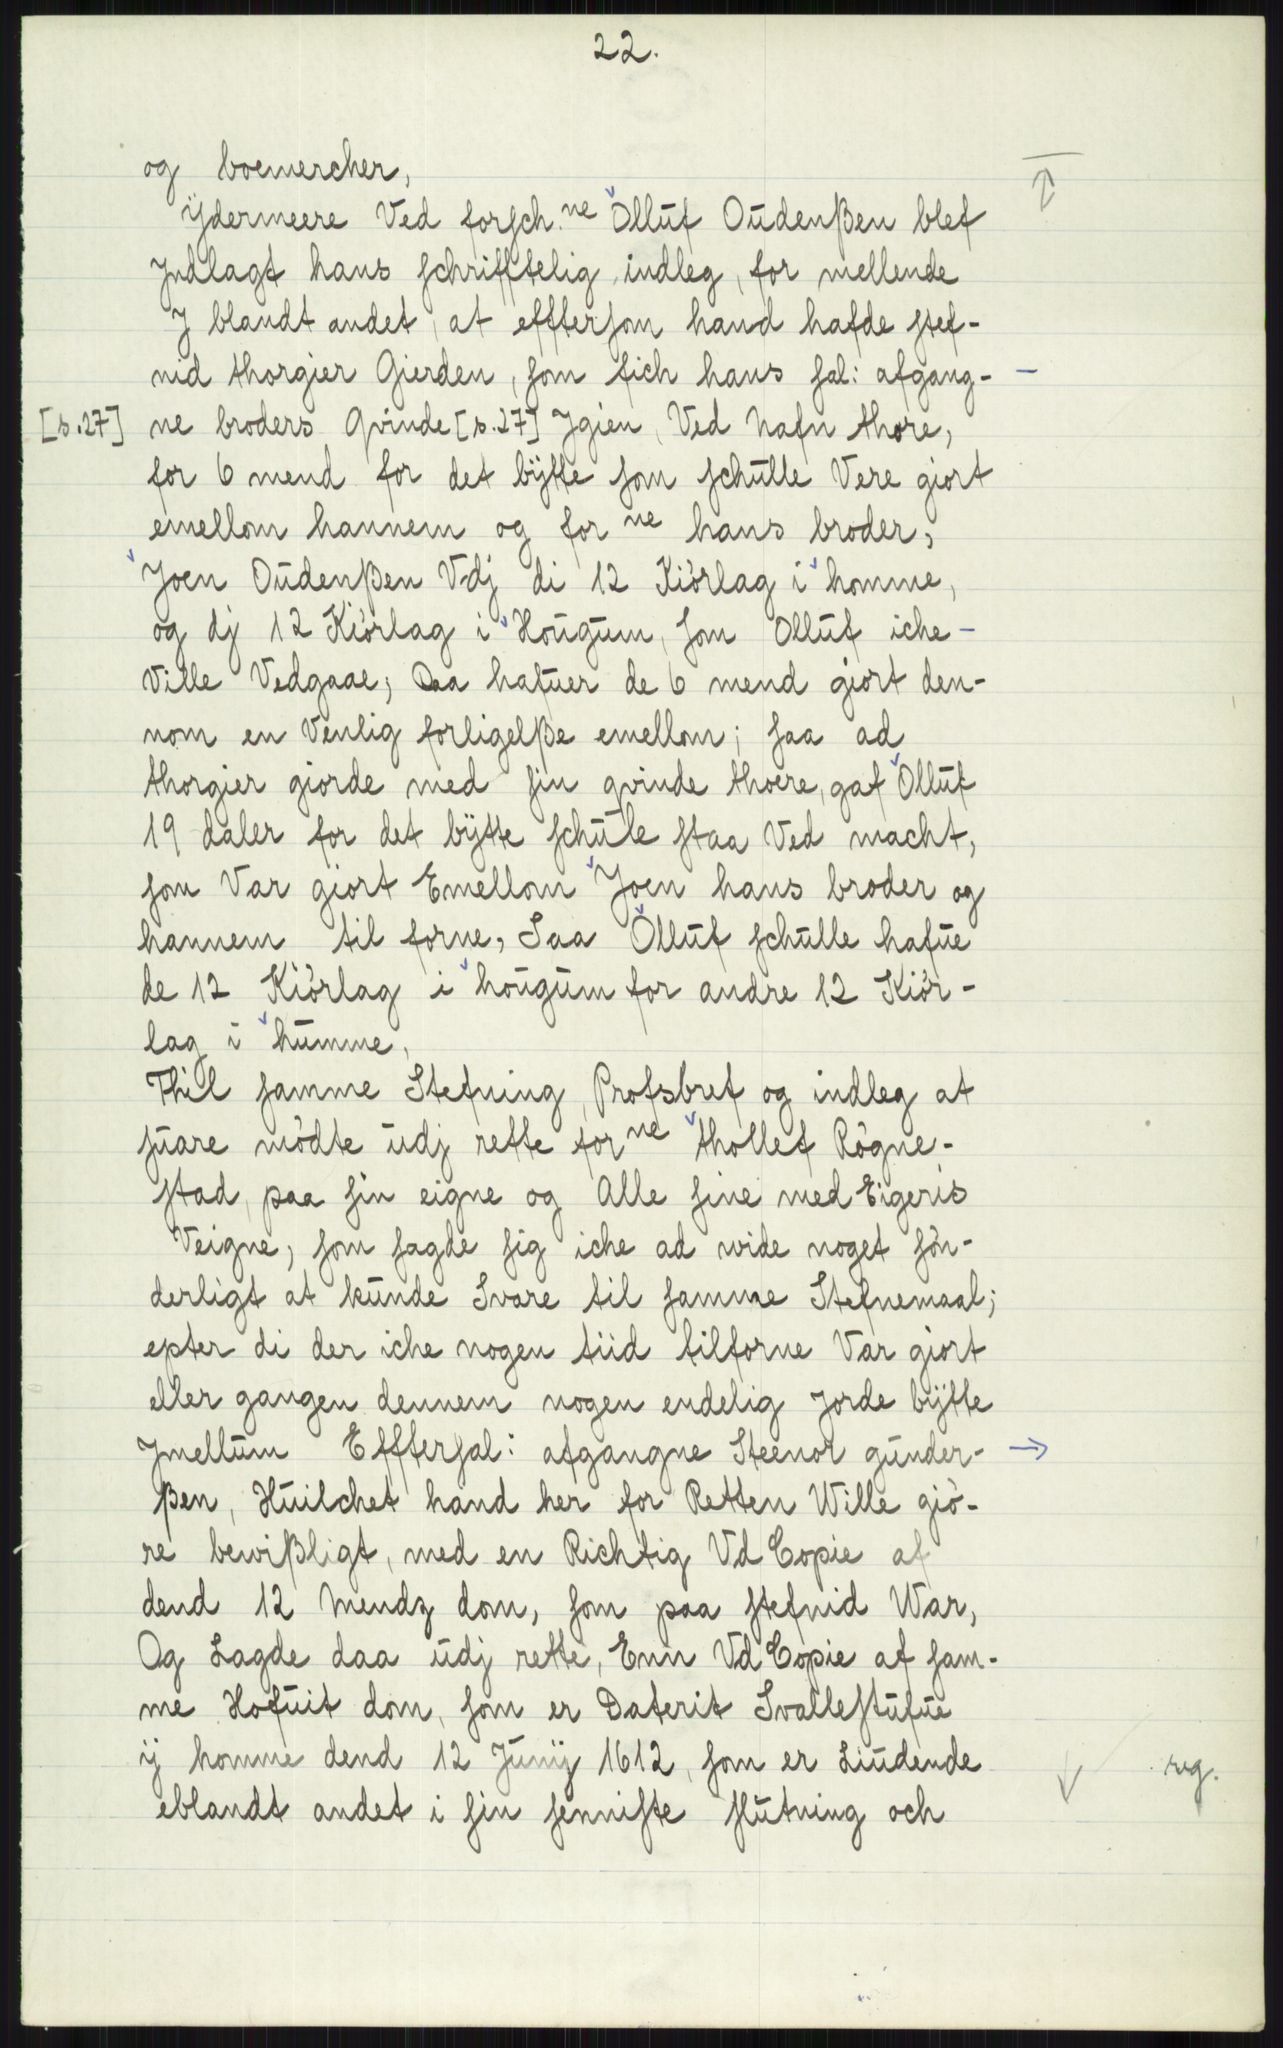 22.
og boemercher,
ÿdermeere Ved forsch.ne Olluf Oudenßen blef
Jndlagt hans schrifftelig indleg, for mellende
J blandt andet, at efftersom hand hafde stef-
nid thorgier Gierden, som fich hans sal: afgang-
[s.27] ne broders Qvinde [s.27] Jgien, Ved Nafn thore,
for 6 mend for det bÿtte som schulle Vere giort
emellom hannem og for ne hans broder,
Joen Oudenßen Vdj di 12 Kiörlag i homme,
og dj 12 Kiörlag i Hougum, som Olluf iche
Ville Vedgaae; Daa hafuer de 6 mend giort den-
nom en Venlig forligelße emellom; saa ad
thorgier giorde med sin qvinde thoere, gaf Olluf
19 daler for det bÿtte schule staa Ved macht,
som Var giort Emellom Joen hans broder og
hannem til forne, Saa Olluf schulle hafue
de 12 Kiörlag i hougum for andre 12 Kiör-
lag i humme,
Thil samme Stefning, Profsbref og indleg at
suare mödte udj rette for ne thollef Rögne-
stad, paa sin eigne og Alle sine med Eigeris
Veigne, som sagde sig iche ad wide noget sön-
derligt at kunde Svare til samme Stefnemaal;
epter di der iche nogen tiid tilforne Var giort
eller gangen dennem nogen endelig jorde bÿtte
Jmellum Efftersal: afgangne Steenor gunder-
ßen, Huilchet hand her for Retten Wille giö-
re bewißligt, med en Richtig Vd Copie af
dend 12 Mendz dom, som paa stefnid War,
Og Lagde daa udj rette, Enn Vd Copie af sam-
me Hofuit dom, som er Daterit Svallestufue
ÿ homme dend 12 Junij 1612, som er Liudende reg.
eblandt andet i sin senniste slutning och